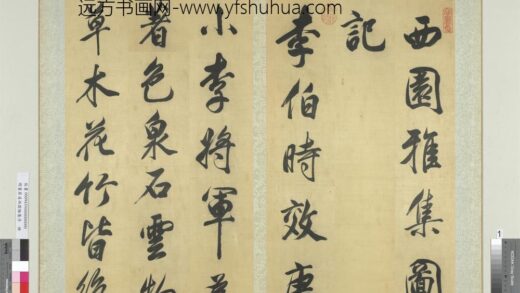 远方书画网-www.yfshuhua.com
西園雅集圖
記
李伯時效唐
小李將軍為
著色泉石雲物
草木花竹皆